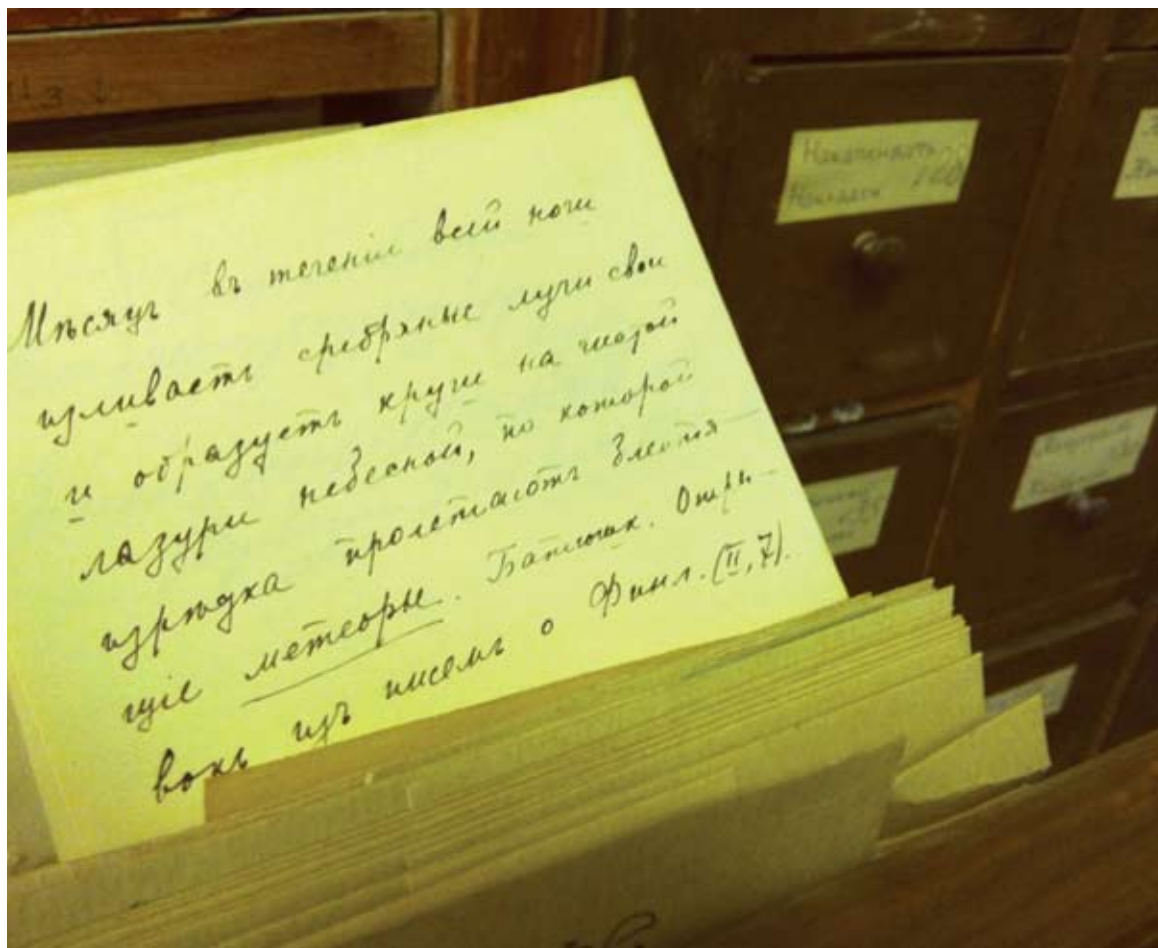 Мѣсяцъ въ теченіи всей ночи
изливаетъ сребряные лучи свои
и образуетъ круги на чистой
лазури небесной, по которой
изрѣдка пролетаютъ блестя-
щіе метеоры. Батюшк. Отры-
вокъ изъ писемъ о Финл. (II, 7).